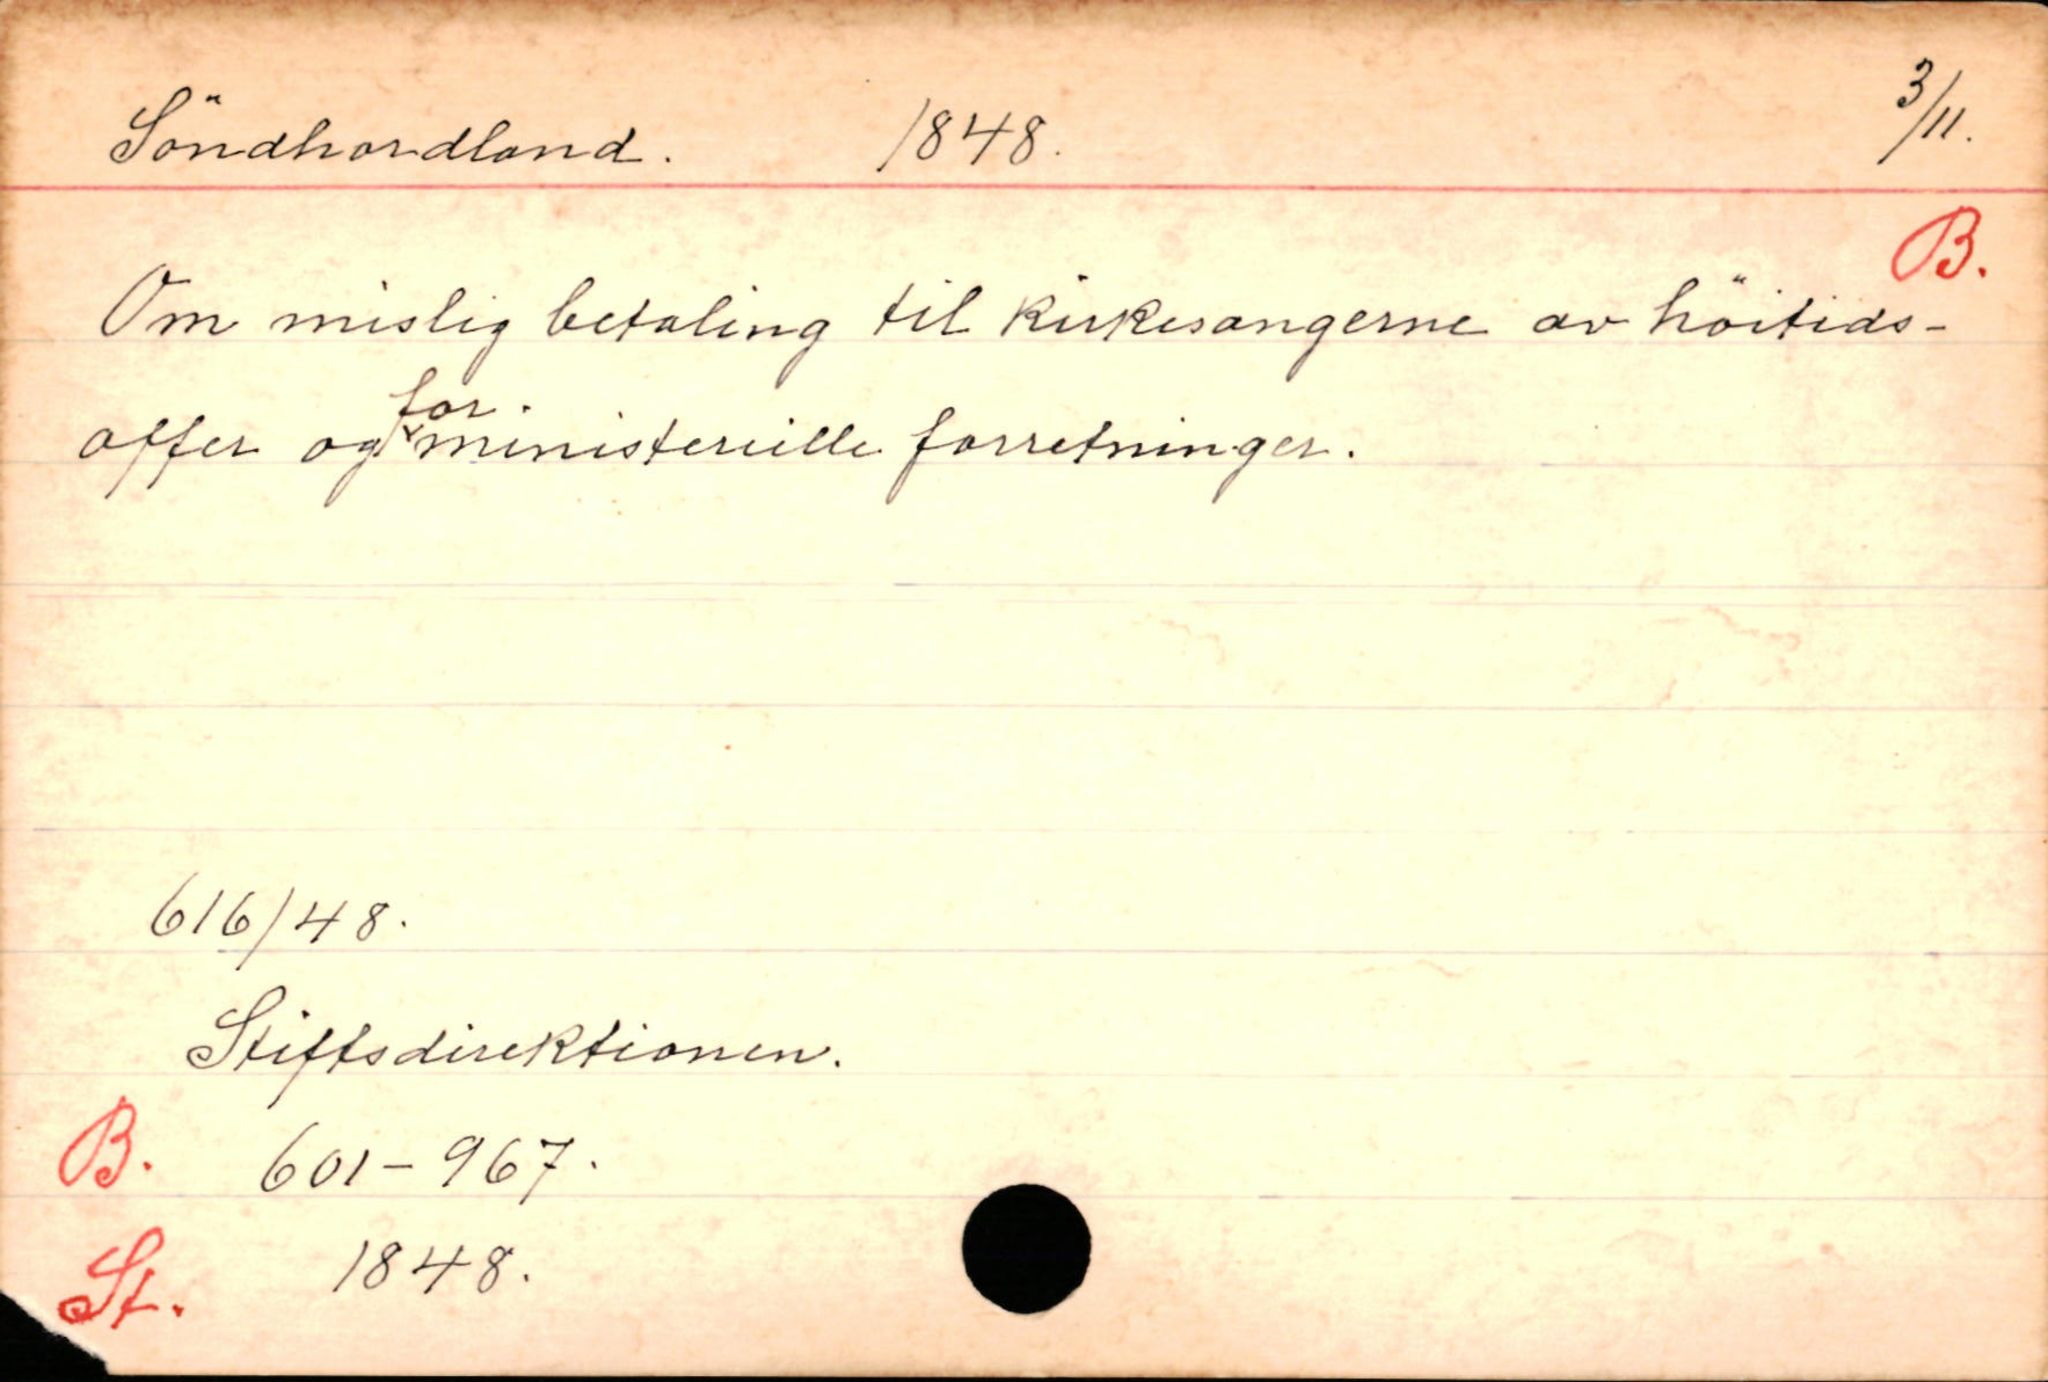 Söndhordland. 1848. 3/11.
B.
Om mislig betaling til kirkesangerne av höitids-
offer og for ministerielle forretninger.
616/48.
Stiftsdirektionen.
B. 601-967.
St. 1848.